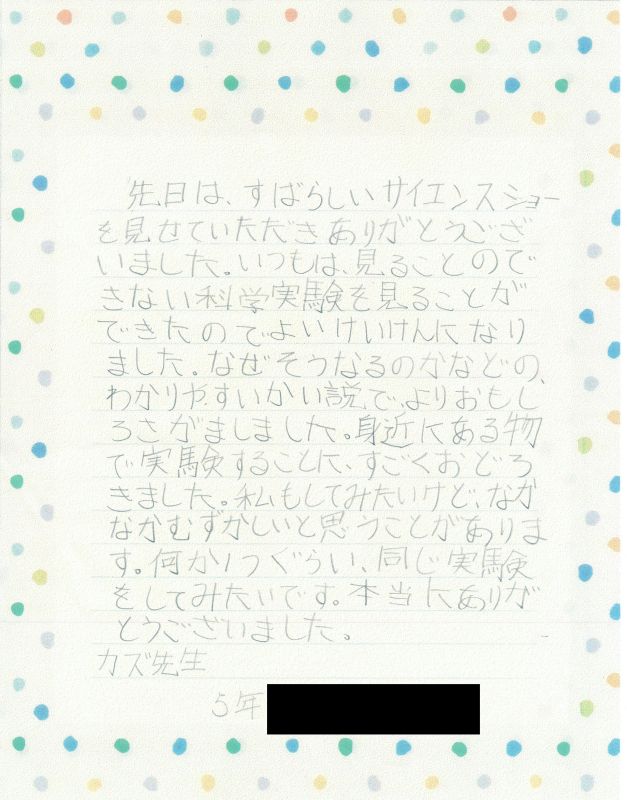 先日は、すばらしいサイエンスショー
を見せていただきありがとうござ
いました。いつもは、見ることので
きない科学実験を見ることが
できたのでよいけいけんになり
ました。なぜそうなるのかなどの、
わかりやすいかい説で、よりおもし
ろさがましました。身近にある物
で実験することに、すごくおどろ
きました。私もしてみたいけど、なか
なかむずかしいと思うことがありま
す。何か1つぐらい、同じ実験
をしてみたいです。本当にありが
とうございました。
カズ先生
5年